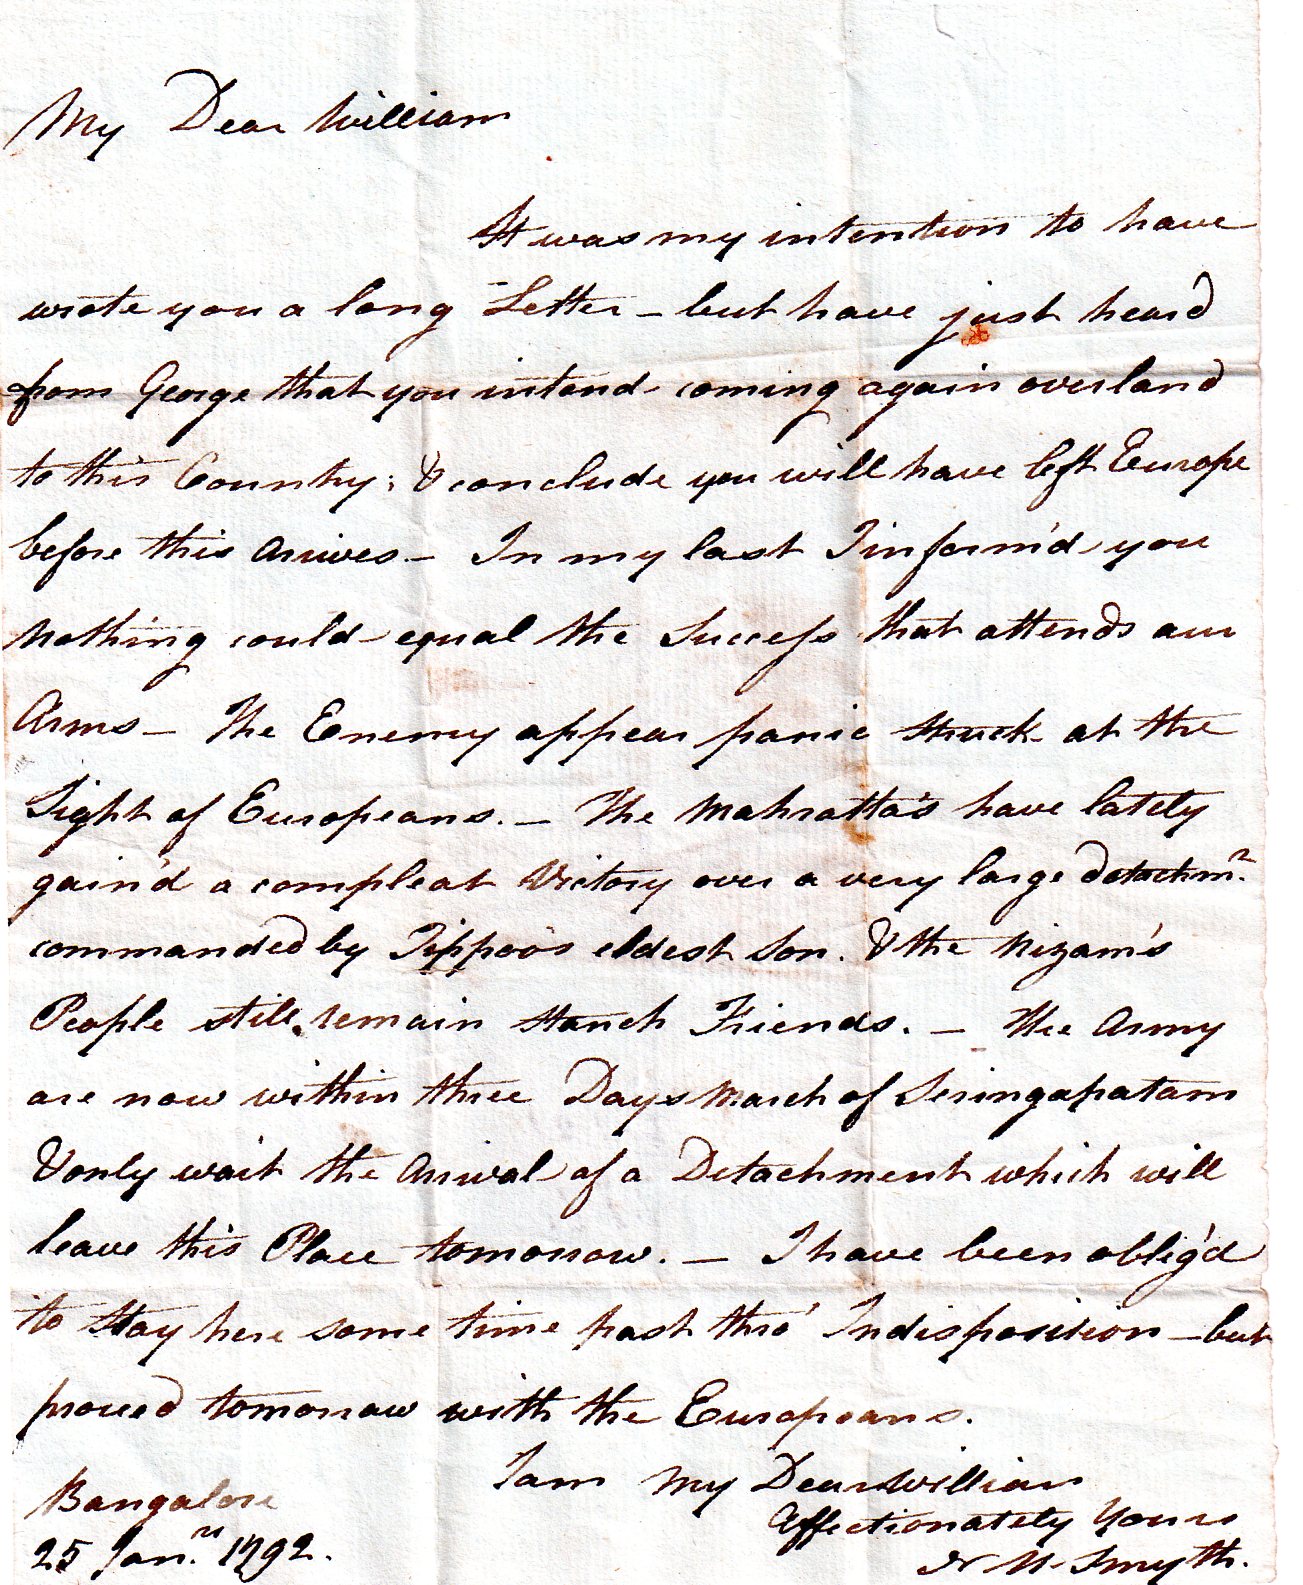 My Dear William
It was my intention to have
wrote you a long Letter - but have just heard
from George that you intend coming again overland
to this Country; & conclude you will have left Europe
before this Arives. - In my last I inform'd you
Nothing could equal the Success that attends our
Arms - The Enemy appear panic struck at the
Sight of Europeans. - The Mahratta's have lately
gain'd a compleat Victory over a very large detachm.
commanded by Tippoo's eldest Son. & the Nizam's
People still remain stanch Friends. - The Army
are now within three Days March of Seringapatam
& only wait the Arival of a Detachment which will
leave this Place tomorrow. - I have been oblig'd
to stay here some time past thro' Indisposition - but
proceed tomorrow with the Europeans.
I am My Dear William
Affectionately Yours
Smyth.
Bangalore
25 Jan.ry 1792.